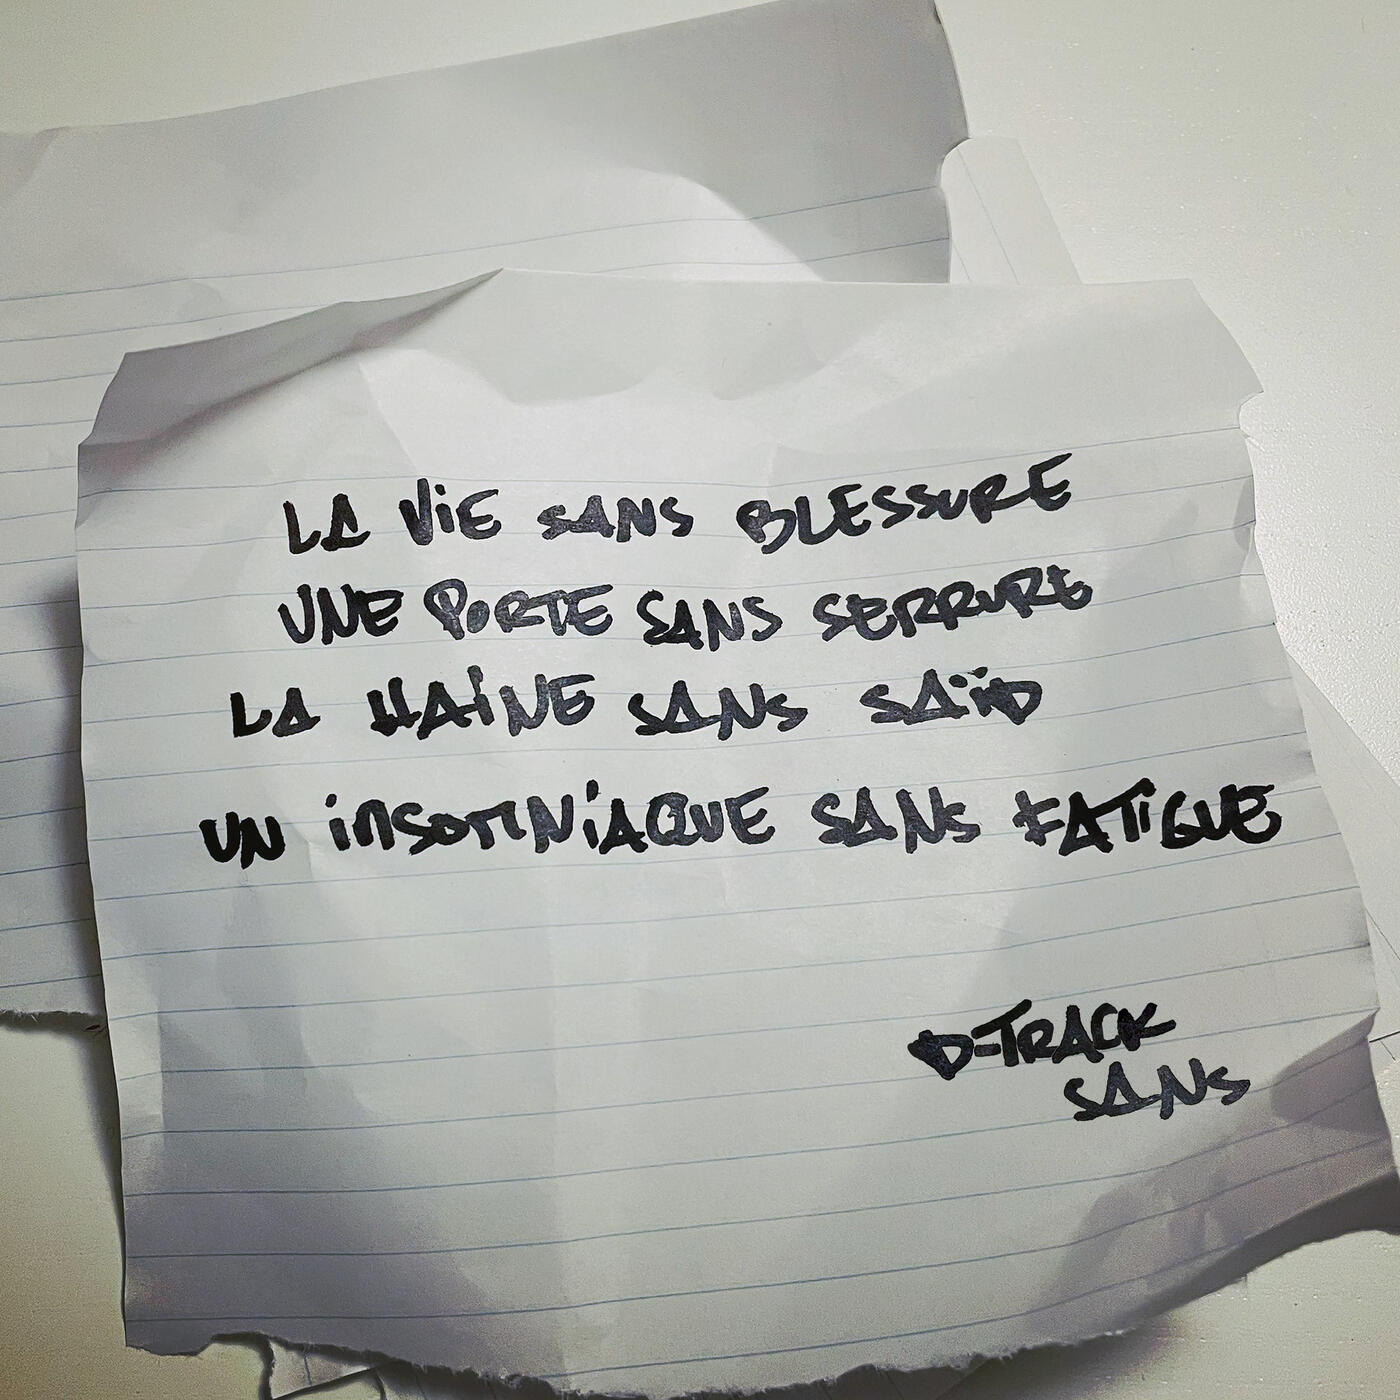 LA ViE SANS BLESSURE
UNE PORTE SANS SERRURE
LA HAiNE SANS SAÏD
UN iNSOMNiAQUE SANS FATiGUE
D-TRACK
SANS